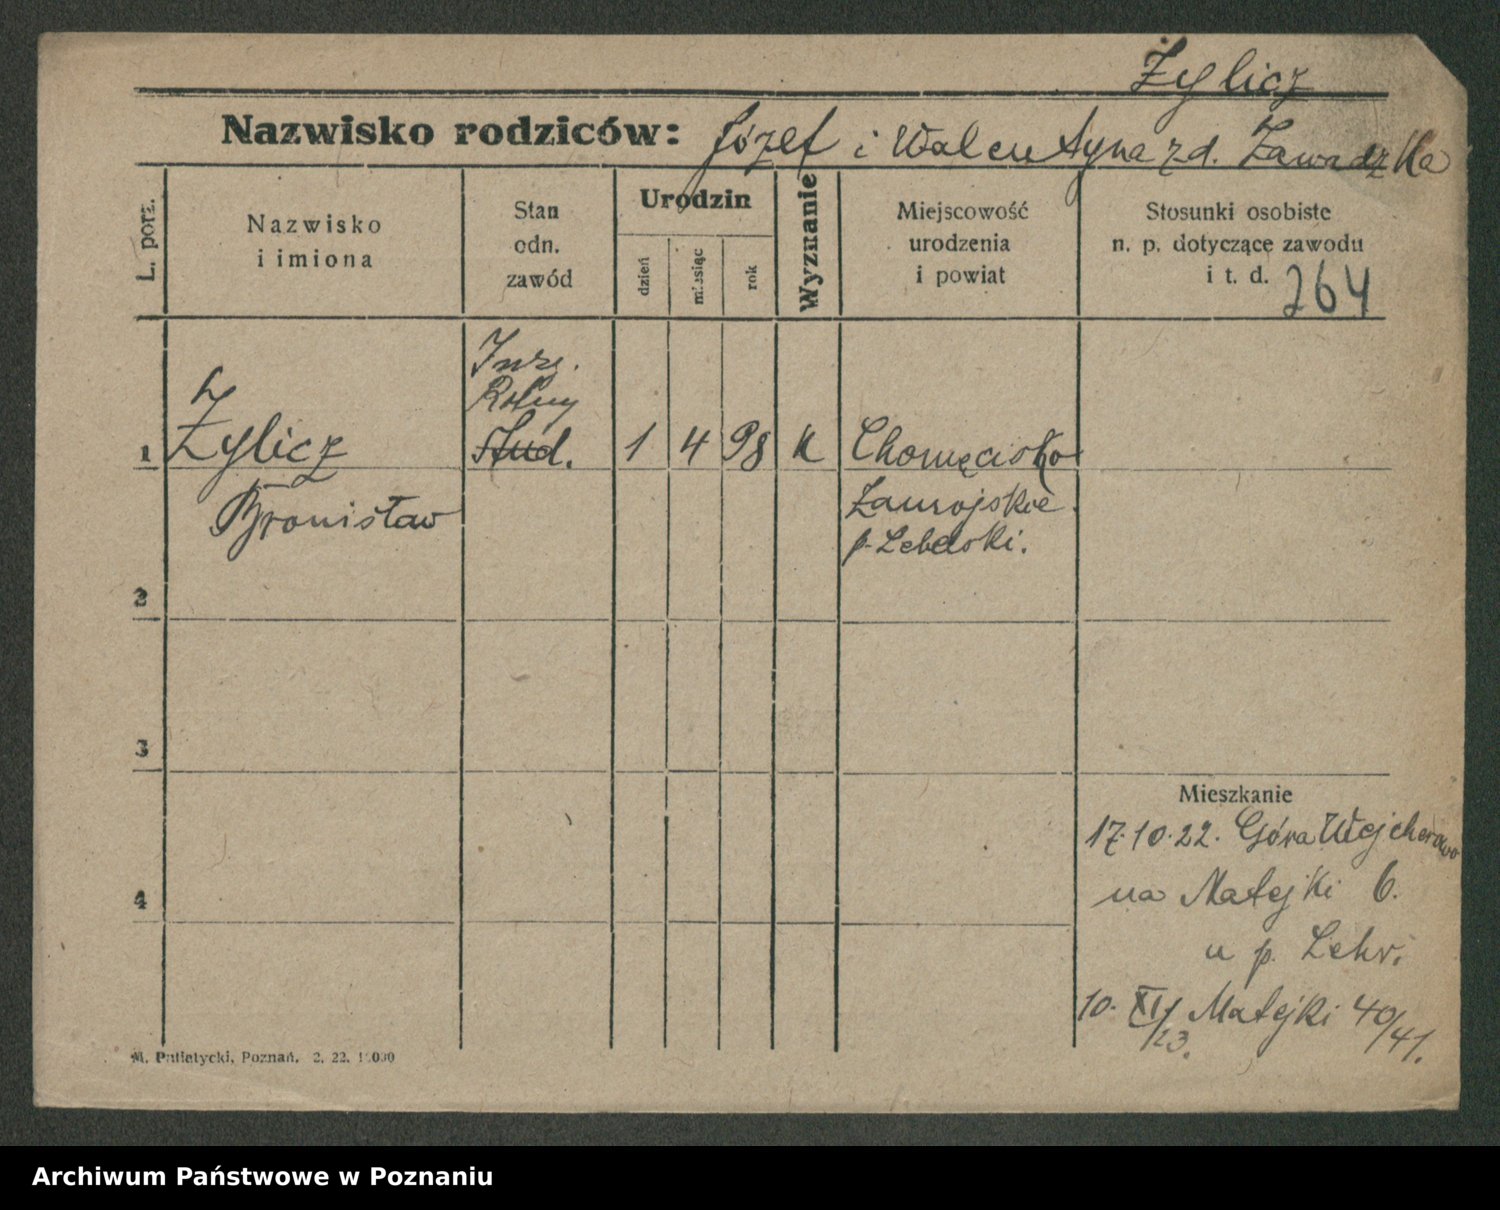 Żylicz
Nazwisko rodziców: Józef i Walentyna z d. Zawadzka
L. porz.
Nazwisko
i imiona
Stan
odn.
zawód
Urodzin
dzień
miesiąc
rok
Wyznanie
Miejscowość
urodzenia
i powiat
Stosunki osobiste
n. p. dotyczące zawodu
i t. d. 264
Inż.
Rolny
1 Żylicz Stud. 1 4 98 K Chomęcisko
Bronisław
Zamojskie
p.
2
3
Mieszkanie
17.10.22. Góra Wejcherowo
4
na Matejki 6.
u p. Lehr.
10. XI/23. Matejki 40/41.
M. Putiatycki, Poznań. 2. 22.
Archiwum Państwowe w Poznaniu